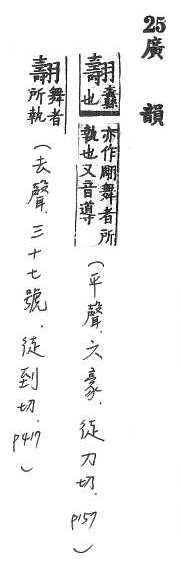 25 廣韻
翿 纛也 亦作翢舞者所執也又音導 (平聲.六豪.徒刀切.p157)
翿 舞者所執 (去聲.三十七號.徒到切.p417)